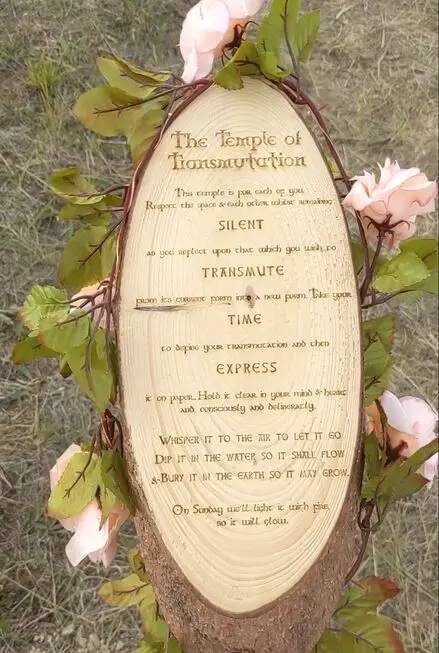 The Temple of
Transmutation
This temple is for each of you.
Respect the space & each other whilst remaining
SILENT
as you reflect upon that which you wish to
TRANSMUTE
from its current form into a new form. Take your
TIME
to define your transmutation and then
EXPRESS
it on paper. Hold it clear in your mind & heart
and, consciously and deliberately,
WHISPER IT TO THE AIR TO LET IT GO
DIP IT IN THE WATER SO IT SHALL FLOW
& BURY IT IN THE EARTH SO IT MAY GROW.
On Sunday we'll light it with fire,
so it will glow.